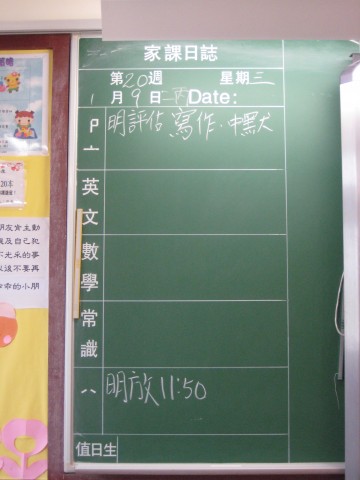 家課日誌
第20週 星期三
1月9日 一丙 Date:
明評估 寫作.中默
英文
數學
常識
明放11:50
值日生
20本
朋友肯主動
及自己犯
光采的事
不要再
的小朋